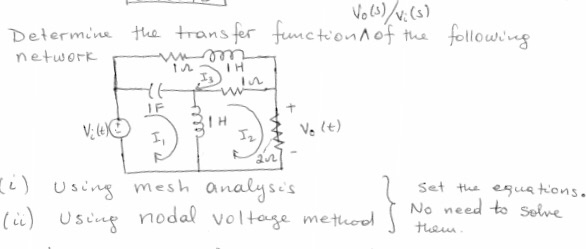 Vo(s)/Vi(s)
Determine the transfer function ∧ of the following
network
1Ω 1H
I3 1Ω
1F
1H
+
Vi(t) I1 I2 Vo(t)
2Ω -
(i) Using mesh analysis
(ii) Using nodal voltage method
Set the equations.
No need to solve
them.